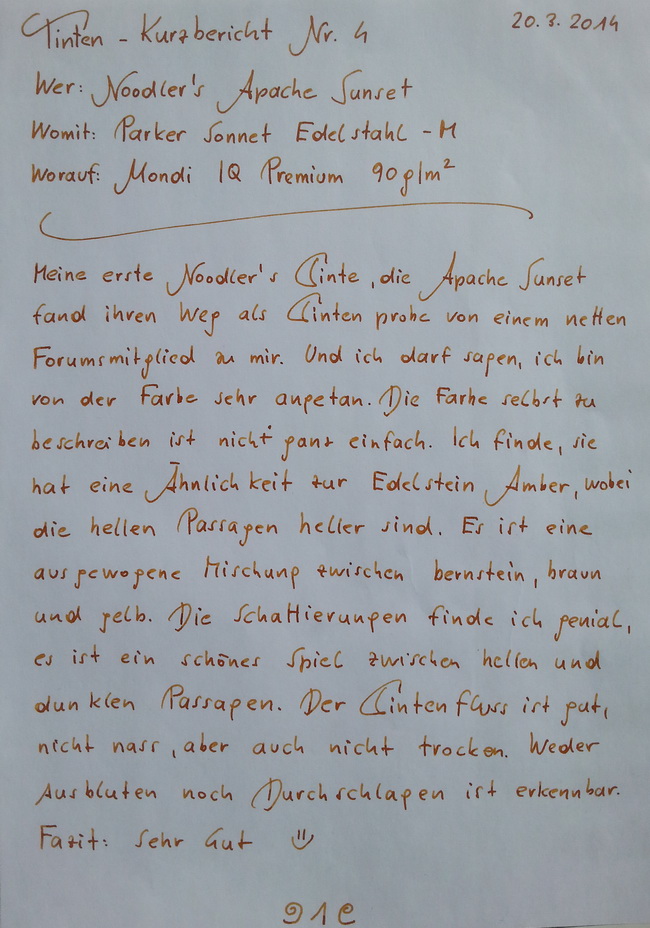 Tinten - Kurzbericht Nr. 4 20.3.2014
Wer: Noodler's Apache Sunset
Womit: Parker Sonnet Edelstahl - M
Worauf: Mondi IQ Premium 90g/m²
Meine erste Noodler's Tinte, die Apache Sunset
fand ihren Weg als Tintenprobe von einem netten
Forumsmitglied zu mir. Und ich darf sagen, ich bin
von der Farbe sehr angetan. Die Farbe selbst zu
beschreiben ist nicht ganz einfach. Ich finde, sie
hat eine Ähnlichkeit zur Edelstein Amber, wobei
die hellen Passagen heller sind. Es ist eine
ausgewogene Mischung zwischen bernstein, braun
und gelb. Die Schattierungen finde ich genial,
es ist ein schönes Spiel zwischen hellen und
dunklen Passagen. Der Tintenfluss ist gut,
nicht nass, aber auch nicht trocken. Weder
Ausbluten noch Durchschlagen ist erkennbar.
Fazit: Sehr Gut